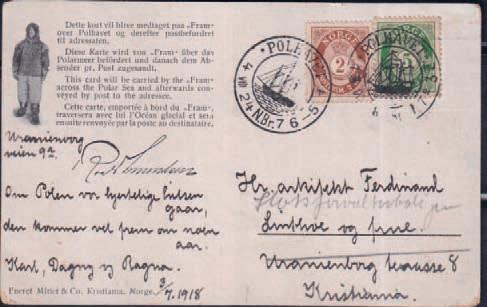 Dette kort vil blive medtaget paa „Fram"
over Polhavet og derefter postbefordret
til adressaten.
Diese Karte wird von „Fram" über das
Polarmeer befördert und danach dem Ab-
sender pr. Post zugesandt.
This card will be carried by the „Fram"
across the Polar Sea and afterwards con-
veyed by post to the adressee.
Cette carte, emportée à bord du „Fram",
traversera avec lui l'Océan glacial et sera
ensuite renvoyée par la poste au destinataire.
POLHAVET
24 VII
NBr. 76-5
NORGE
2
NORGE
5
POLHAVET
Uranienborg
veien 9a
Om Polen vor hjerteligste hilsen
gaar,
den kommer vel frem om noen
aar.
Karl, Dagny og Ragna.
3/7.1918
Hr. arkitekt Ferdinand
og frue.
Uranienborg terasse 8
Kristiania.
Eneret Mittet & Co. Kristiania, Norge.